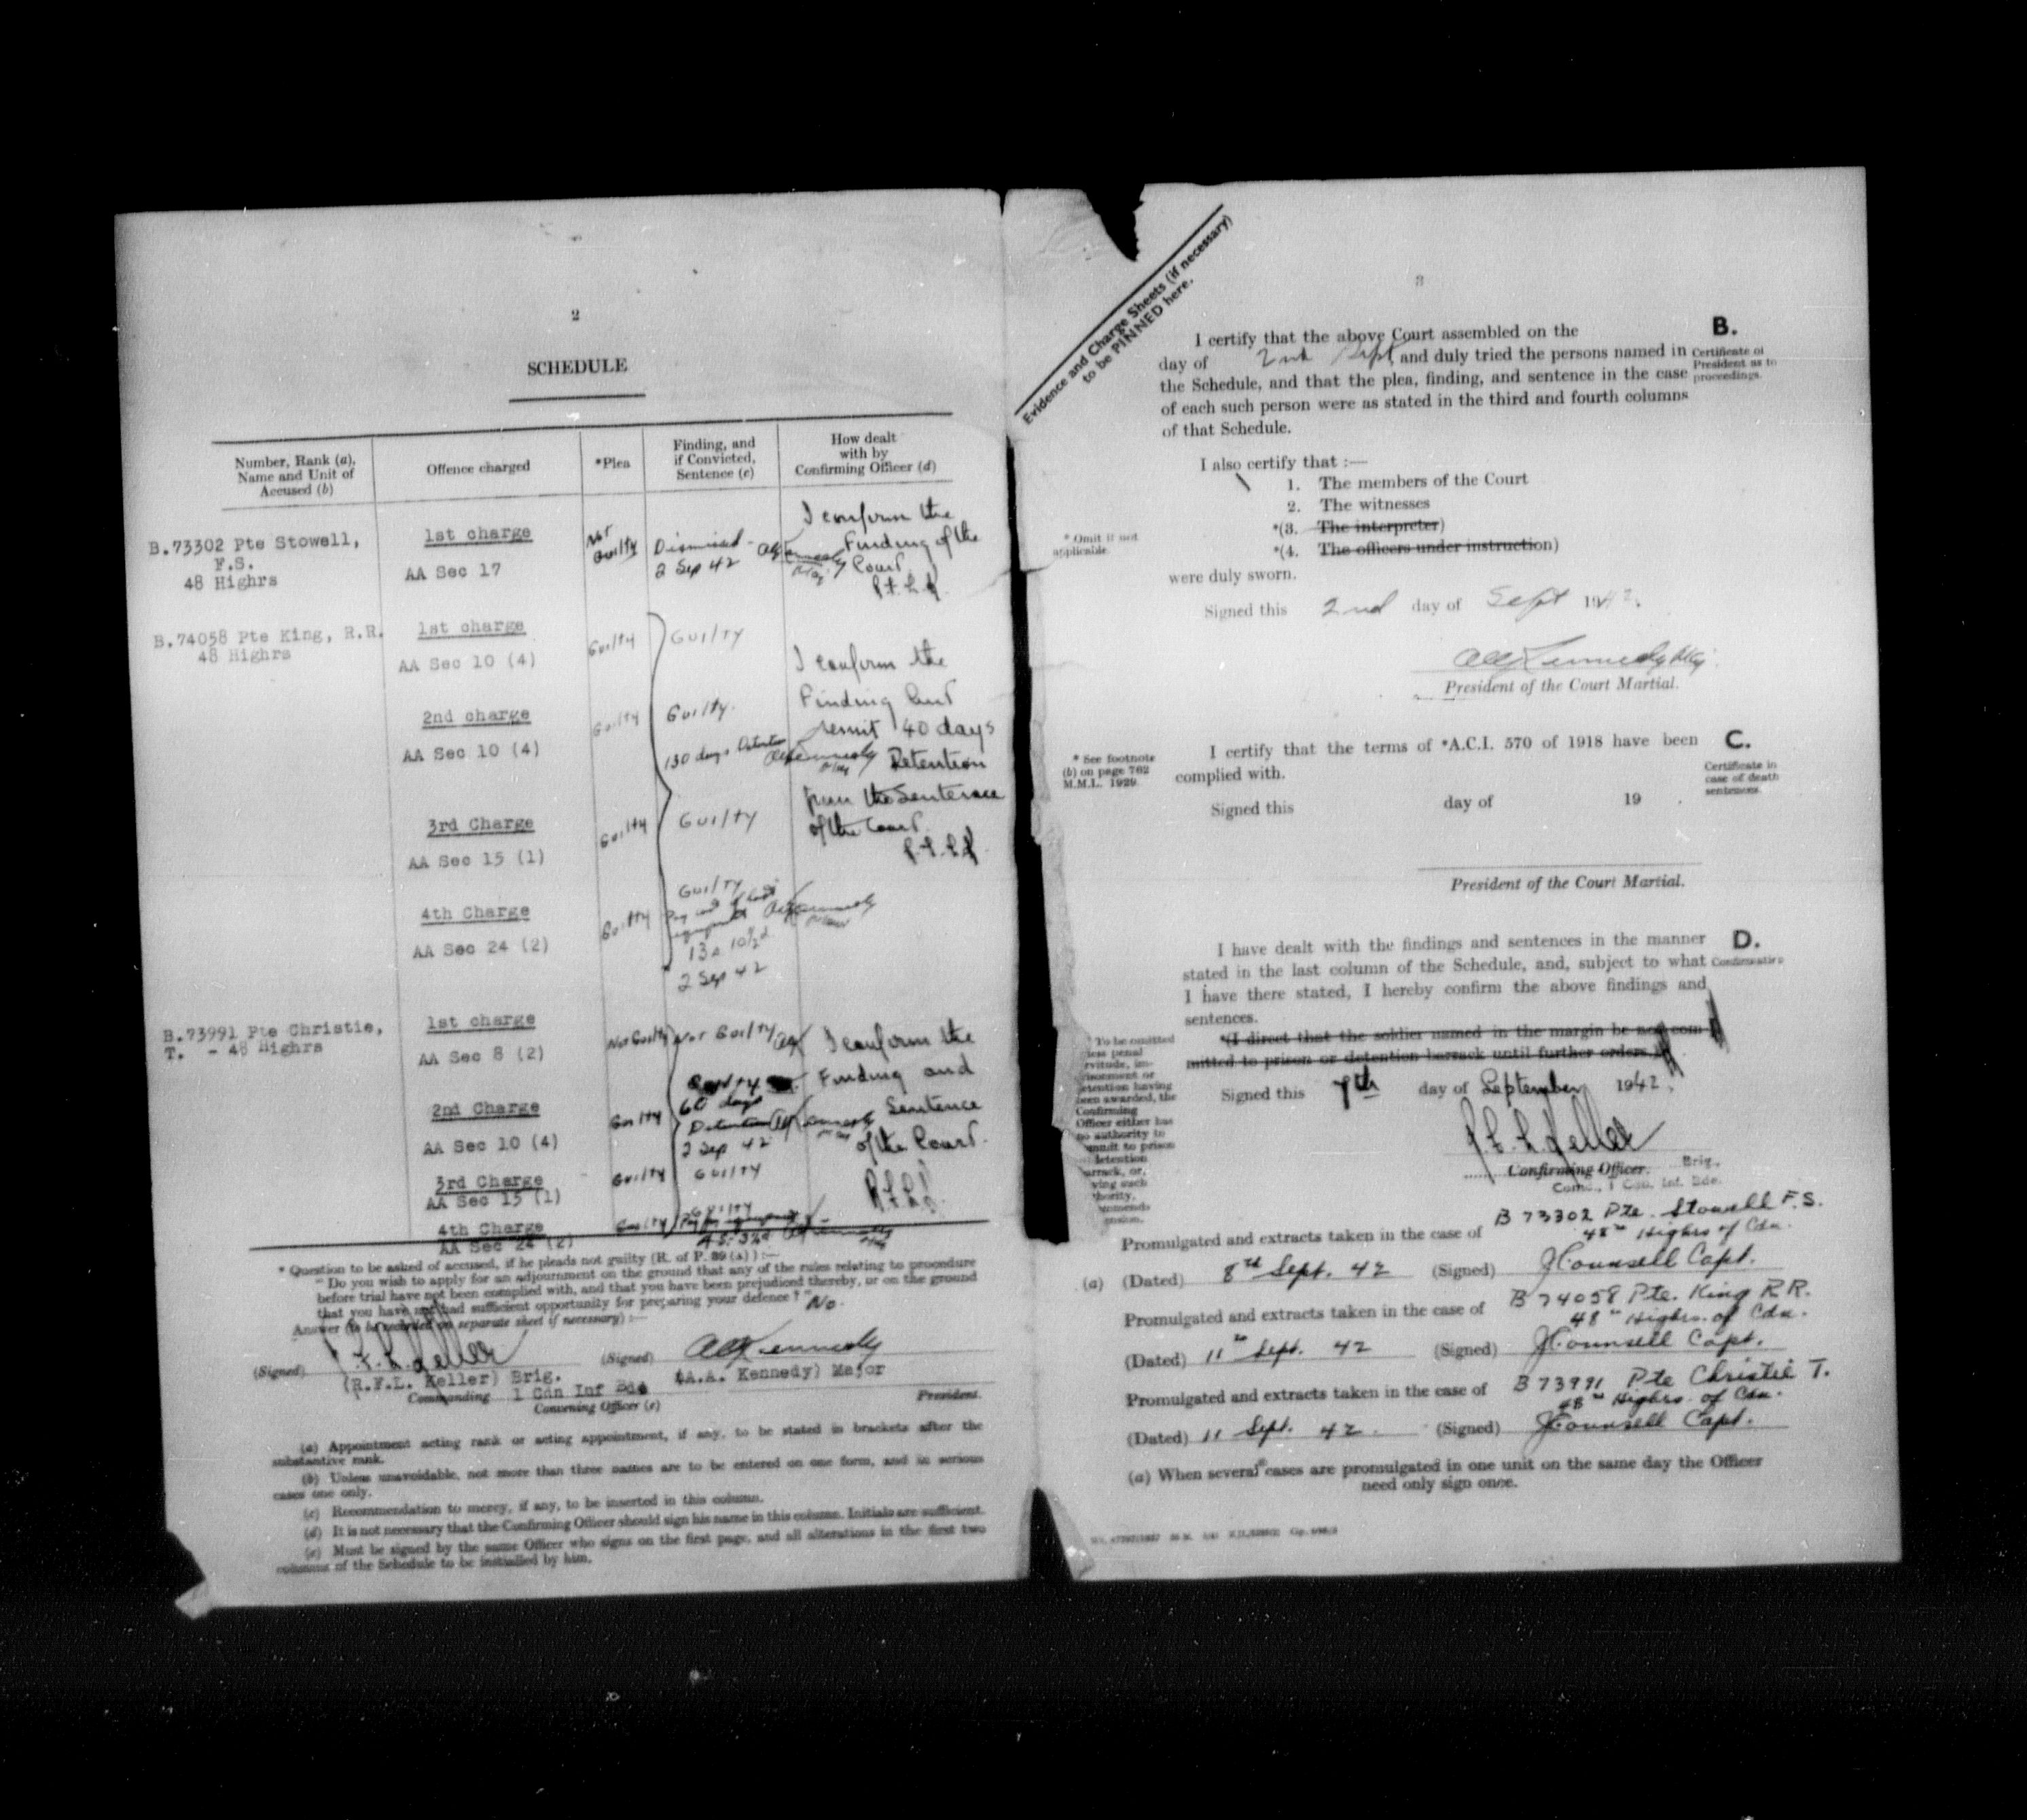 2
SCHEDULE
Number, Rank (a),
Name and Unit of
Accused (b)
Offence charged
*Plea
Finding, and
if Convicted,
Sentence (c)
How dealt
with by
Confirming Officer (d)
B.73302 Pte Stowell,
F.S.
48 Highrs
1st charge
AA Sec 17
Not
Guilty
Dismissed -
2 Sep 42
AAKennedy
Maj
I confirm the
Finding of the
Court
B.74058 Pte King, R.R.
48 Highrs
1st charge
AA Sec 10 (4)
Guilty
Guilty
2nd charge
AA Sec 10 (4)
Guilty
Guilty.
130 days Detention
AAKennedy
Maj
I confirm the
Finding but
remit 40 days
Detention
from the Sentence
of the Court.
3rd Charge
AA Sec 15 (1)
Guilty
Guilty
4th Charge
AA Sec 24 (2)
Guilty
Guilty
AAKennedy
13s 10½d
2 Sep 42
B.73991 Pte Christie,
T. - 48 Highrs
1st charge
AA Sec 8 (2)
Not Guilty
Not Guilty
2nd Charge
AA Sec 10 (4)
Guilty
Guilty
60 days
Detention AAKennedy
2 Sep 42
I confirm the
Finding and
Sentence
of the Court.
3rd Charge
AA Sec 15 (1)
Guilty
Guilty
4th Charge
AA Sec 24 (2)
Guilty
Guilty
AAKennedy
* Question to be asked of accused, if he pleads not guilty (R. of P. 39 (A)) :—
“ Do you wish to apply for an adjournment on the ground that any of the rules relating to procedure
before trial have not been complied with, and that you have been prejudiced thereby, or on the ground
that you have not had sufficient opportunity for preparing your defence ? ” No.
Answer (to be recorded on separate sheet if necessary) :—
(Signed) R.F.L. Keller
(R.F.L. Keller) Brig.
Commanding 1 Cdn Inf Bde
Convening Officer (e)
(Signed) AAKennedy
(A.A. Kennedy) Major
President.
(a) Appointment acting rank or acting appointment, if any, to be stated in brackets after the
substantive rank.
(b) Unless unavoidable, not more than three names are to be entered on one form, and in serious
cases one only.
(c) Recommendation to mercy, if any, to be inserted in this column.
(d) It is not necessary that the Confirming Officer should sign his name in this column. Initials are sufficient.
(e) Must be signed by the same Officer who signs on the first page, and all alterations in the first two
columns of the Schedule to be initialled by him.
3
Evidence and Charge Sheets (if necessary)
to be PINNED here.
B.
Certificate of
President as to
proceedings.
I certify that the above Court assembled on the
day of 2nd Sept and duly tried the persons named in
the Schedule, and that the plea, finding, and sentence in the case
of each such person were as stated in the third and fourth columns
of that Schedule.
I also certify that :—
1. The members of the Court
2. The witnesses
*(3. The interpreter)
*(4. The officers under instruction)
* Omit if not
applicable
were duly sworn.
Signed this 2nd day of Sept 1942.
AAKennedy Maj
President of the Court Martial.
C.
Certificate in
case of death
sentences.
* See footnote
(b) on page 762
M.M.L. 1929.
I certify that the terms of *A.C.I. 570 of 1918 have been
complied with.
Signed this day of 19 .
President of the Court Martial.
D.
Confirmation
I have dealt with the findings and sentences in the manner
stated in the last column of the Schedule, and, subject to what
I have there stated, I hereby confirm the above findings and
sentences.
*(I direct that the soldier named in the margin be not com-
mitted to prison or detention barrack until further orders.)
To be omitted
Confirming
Officer either has
Signed this 7th day of September 1942.
R.F.L. Keller
Confirming Officer. Brig.
Comd., 1 Cdn. Inf. Bde.
Promulgated and extracts taken in the case of B 73302 Pte. Stowell F.S.
48th Highrs of Cdn.
(a) (Dated) 8th Sept. 42 (Signed) JCounsell Capt.
Promulgated and extracts taken in the case of B 74058 Pte. King R R.
48th Highrs. of Cdn.
(Dated) 11th Sept. 42 (Signed) JCounsell Capt.
Promulgated and extracts taken in the case of B 73991 Pte Christie T.
48th Highrs. of Cdn.
(Dated) 11 Sept. 42. (Signed) JCounsell Capt.
(a) When several cases are promulgated in one unit on the same day the Officer
need only sign once.